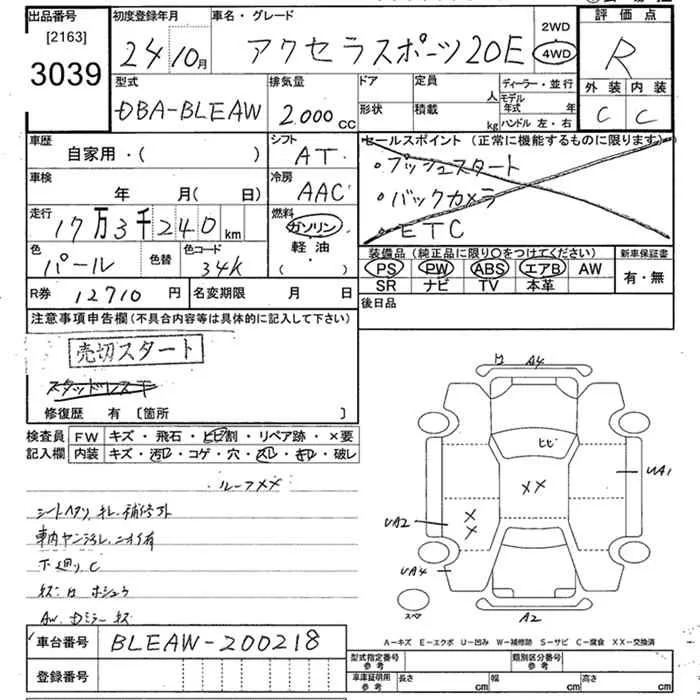 出品番号 初度登録年月 車名・グレード 2WD 評価点
[2163] 24 10月 アクセラスポーツ20E 4WD R
3039
型式 排気量 ドア 定員 ディーラー・並行 外装 内装
DBA-BLEAW 2.000 CC 人 モデル年式 年 C C
形状 積載 kg ハンドル 左・右
車歴 シフト セールスポイント (正常に機能するものに限ります)
自家用・( ) AT ・プッシュスタート
車検 冷房 ・バックカメラ
年 月( 日) AAC ・ETC
走行 燃料
17万3千240km ガソリン
色 色替 色コード 軽油・ 装備品 (純正品に限り○をつけてください) 新車保証書
パール 34K ( ) PS PW ABS エアB AW 有・無
SR ナビ TV 本革
R券 12710円 名変期限 月 日 後日品
注意事項申告欄(不具合内容等は具体的に記入して下さい)
売切スタート
スタッドレス
修復歴 有 [箇所 ]
A4
検査員 FW キズ・飛石・ヒビ割・リペア跡・×要
記入欄 内装 キズ・汚れ・コゲ・穴・スレ・キレ・破レ
ヒビ
ルーフメメ
UA1
XX
シートヘタリ、キレ、補修外
X
UA2 X
車内ヤニ汚レ、ニオイ有
下廻りC
UA4
AW、Dミラーキズ
スペア A2
A-キズ E-エクボ U-凹み W-補修跡 S-サビ C-腐食 XX-交換済
車台番号 BLEAW-200218
型式指定番号 参考 類別区分番号 参考
登録番号
車庫証明用 参考 長さ cm 幅 cm 高さ cm